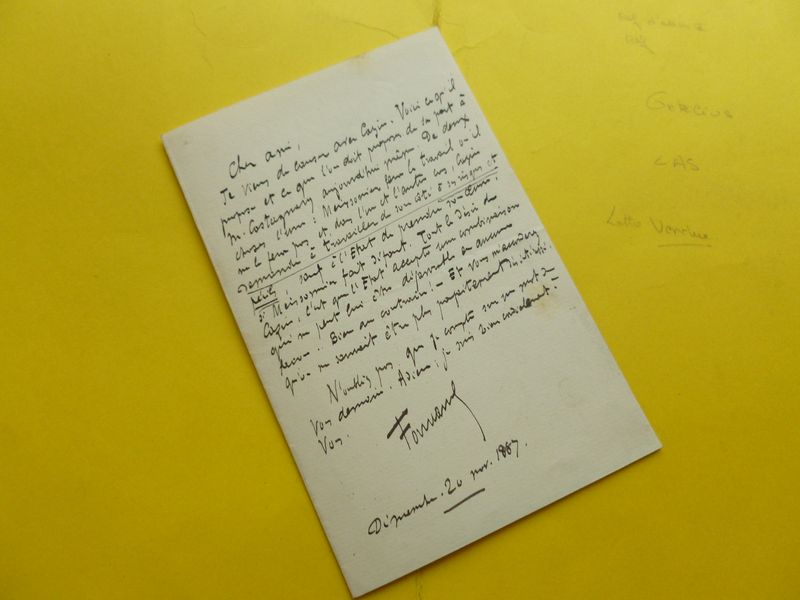 Cher ami,
Je viens de causer avec Cazin. Voici ce qu'il
propose et ce que l'on doit proposer de sa part à
M. Castagnary aujourd'hui même. De deux
choses l'une : Meissonier fera le travail où il
ne le fera pas et dans l'un et l'autre cas Cazin
demande à travailler de son côté à ses risques et
périls ; sauf à l'Etat de prendre son œuvre ;
si Meissonier fait défaut. Tout le désir de
Cazin, c'est que l'Etat accepte une combinaison
qui ne peut lui être défavorable en aucun
Bien au contraire ! - Et vous
qu'on ne saurait être plus parfaitement
N'oubliez pas que je compte sur un mot de
Vous demain. Adieu, je suis bien cordialement
Vos.
Dimanche. 20 nov. 1887.
Gercius
LAS
Lotto Venduc